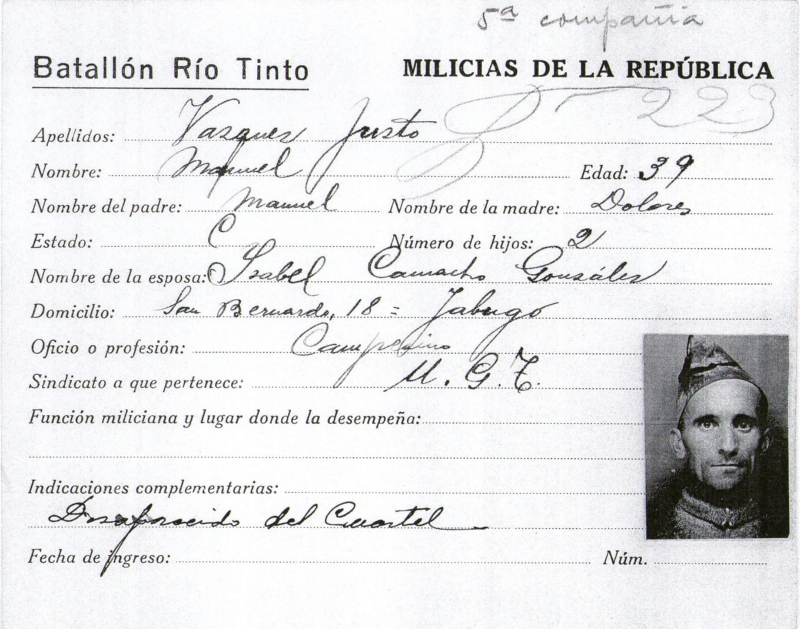 5ª compañia
Batallón Río Tinto
MILICIAS DE LA REPÚBLICA
223
Apellidos: Vazquez Justo
Nombre: Manuel Edad: 39
Nombre del padre: Manuel Nombre de la madre: Dolores
Estado: C Número de hijos: 2
Nombre de la esposa: Isabel Camacho Gonsáles
Domicilio: San Bernardo, 18 = Jabugo
Oficio o profesión: Campesino
Sindicato a que pertenece: U. G. T.
Función miliciana y lugar donde la desempeña:
Indicaciones complementarias:
Desaparecido del Cuartel
Fecha de ingreso: Núm.